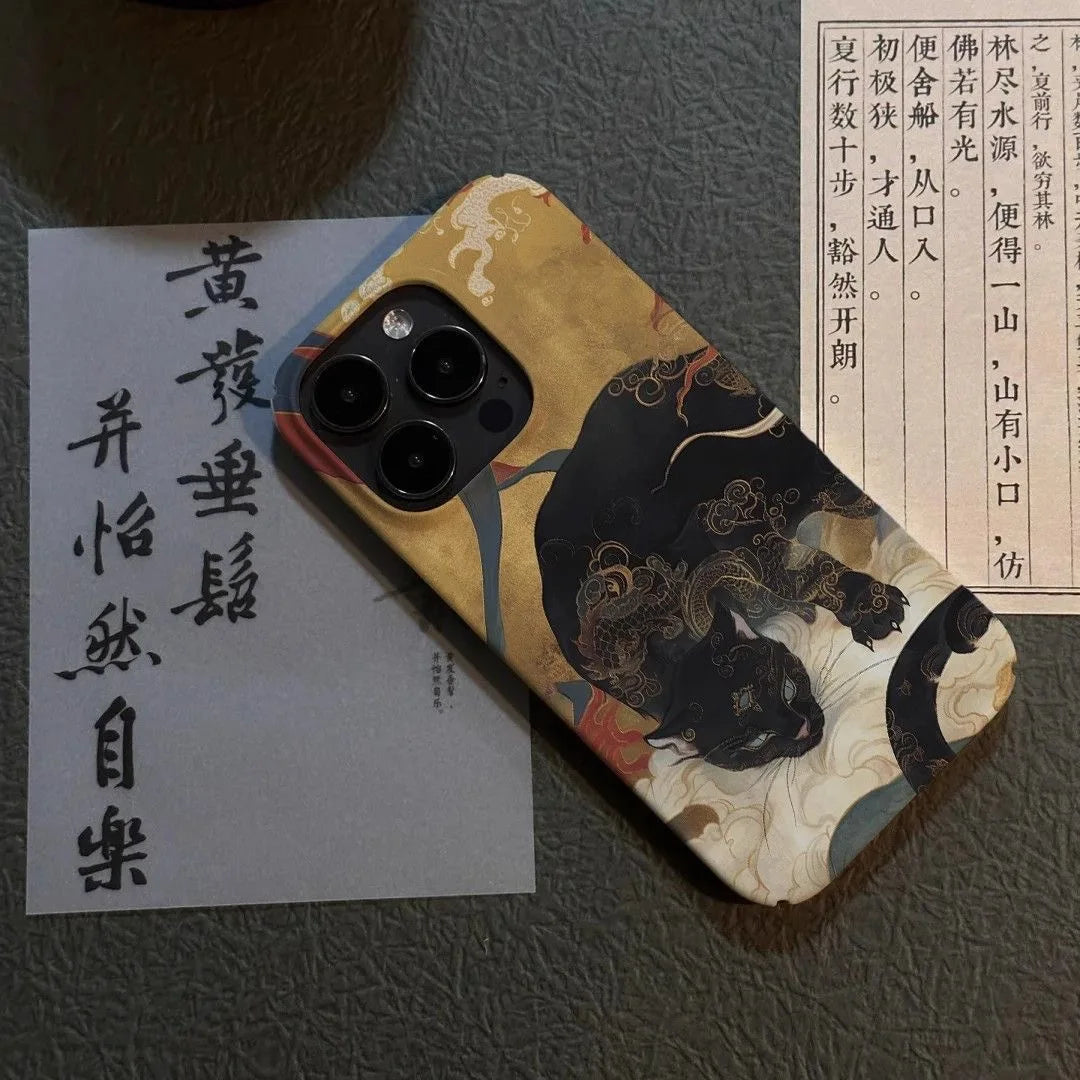 黄發垂髫
并怡然自樂
黄发垂髫，
并怡然自乐。
之，复前行，欲穷其林。
林尽水源，便得一山，山有小口，仿
佛若有光。
便舍船，从口入。
初极狭，才通人。
复行数十步，豁然开朗。